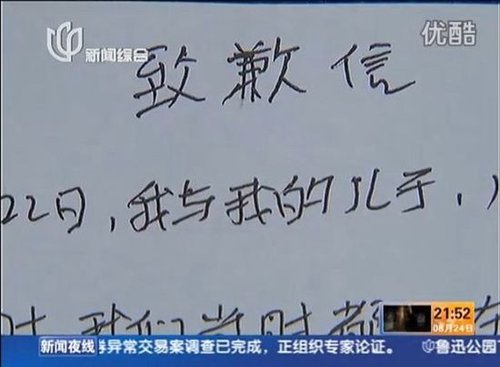 新闻综合
优酷
致歉信
22日，我与我的儿子，
时 我们当时都 在
21:52
08月24日
新闻夜线 券异常交易案调查已完成，正组织专家论证。 鲁迅公园